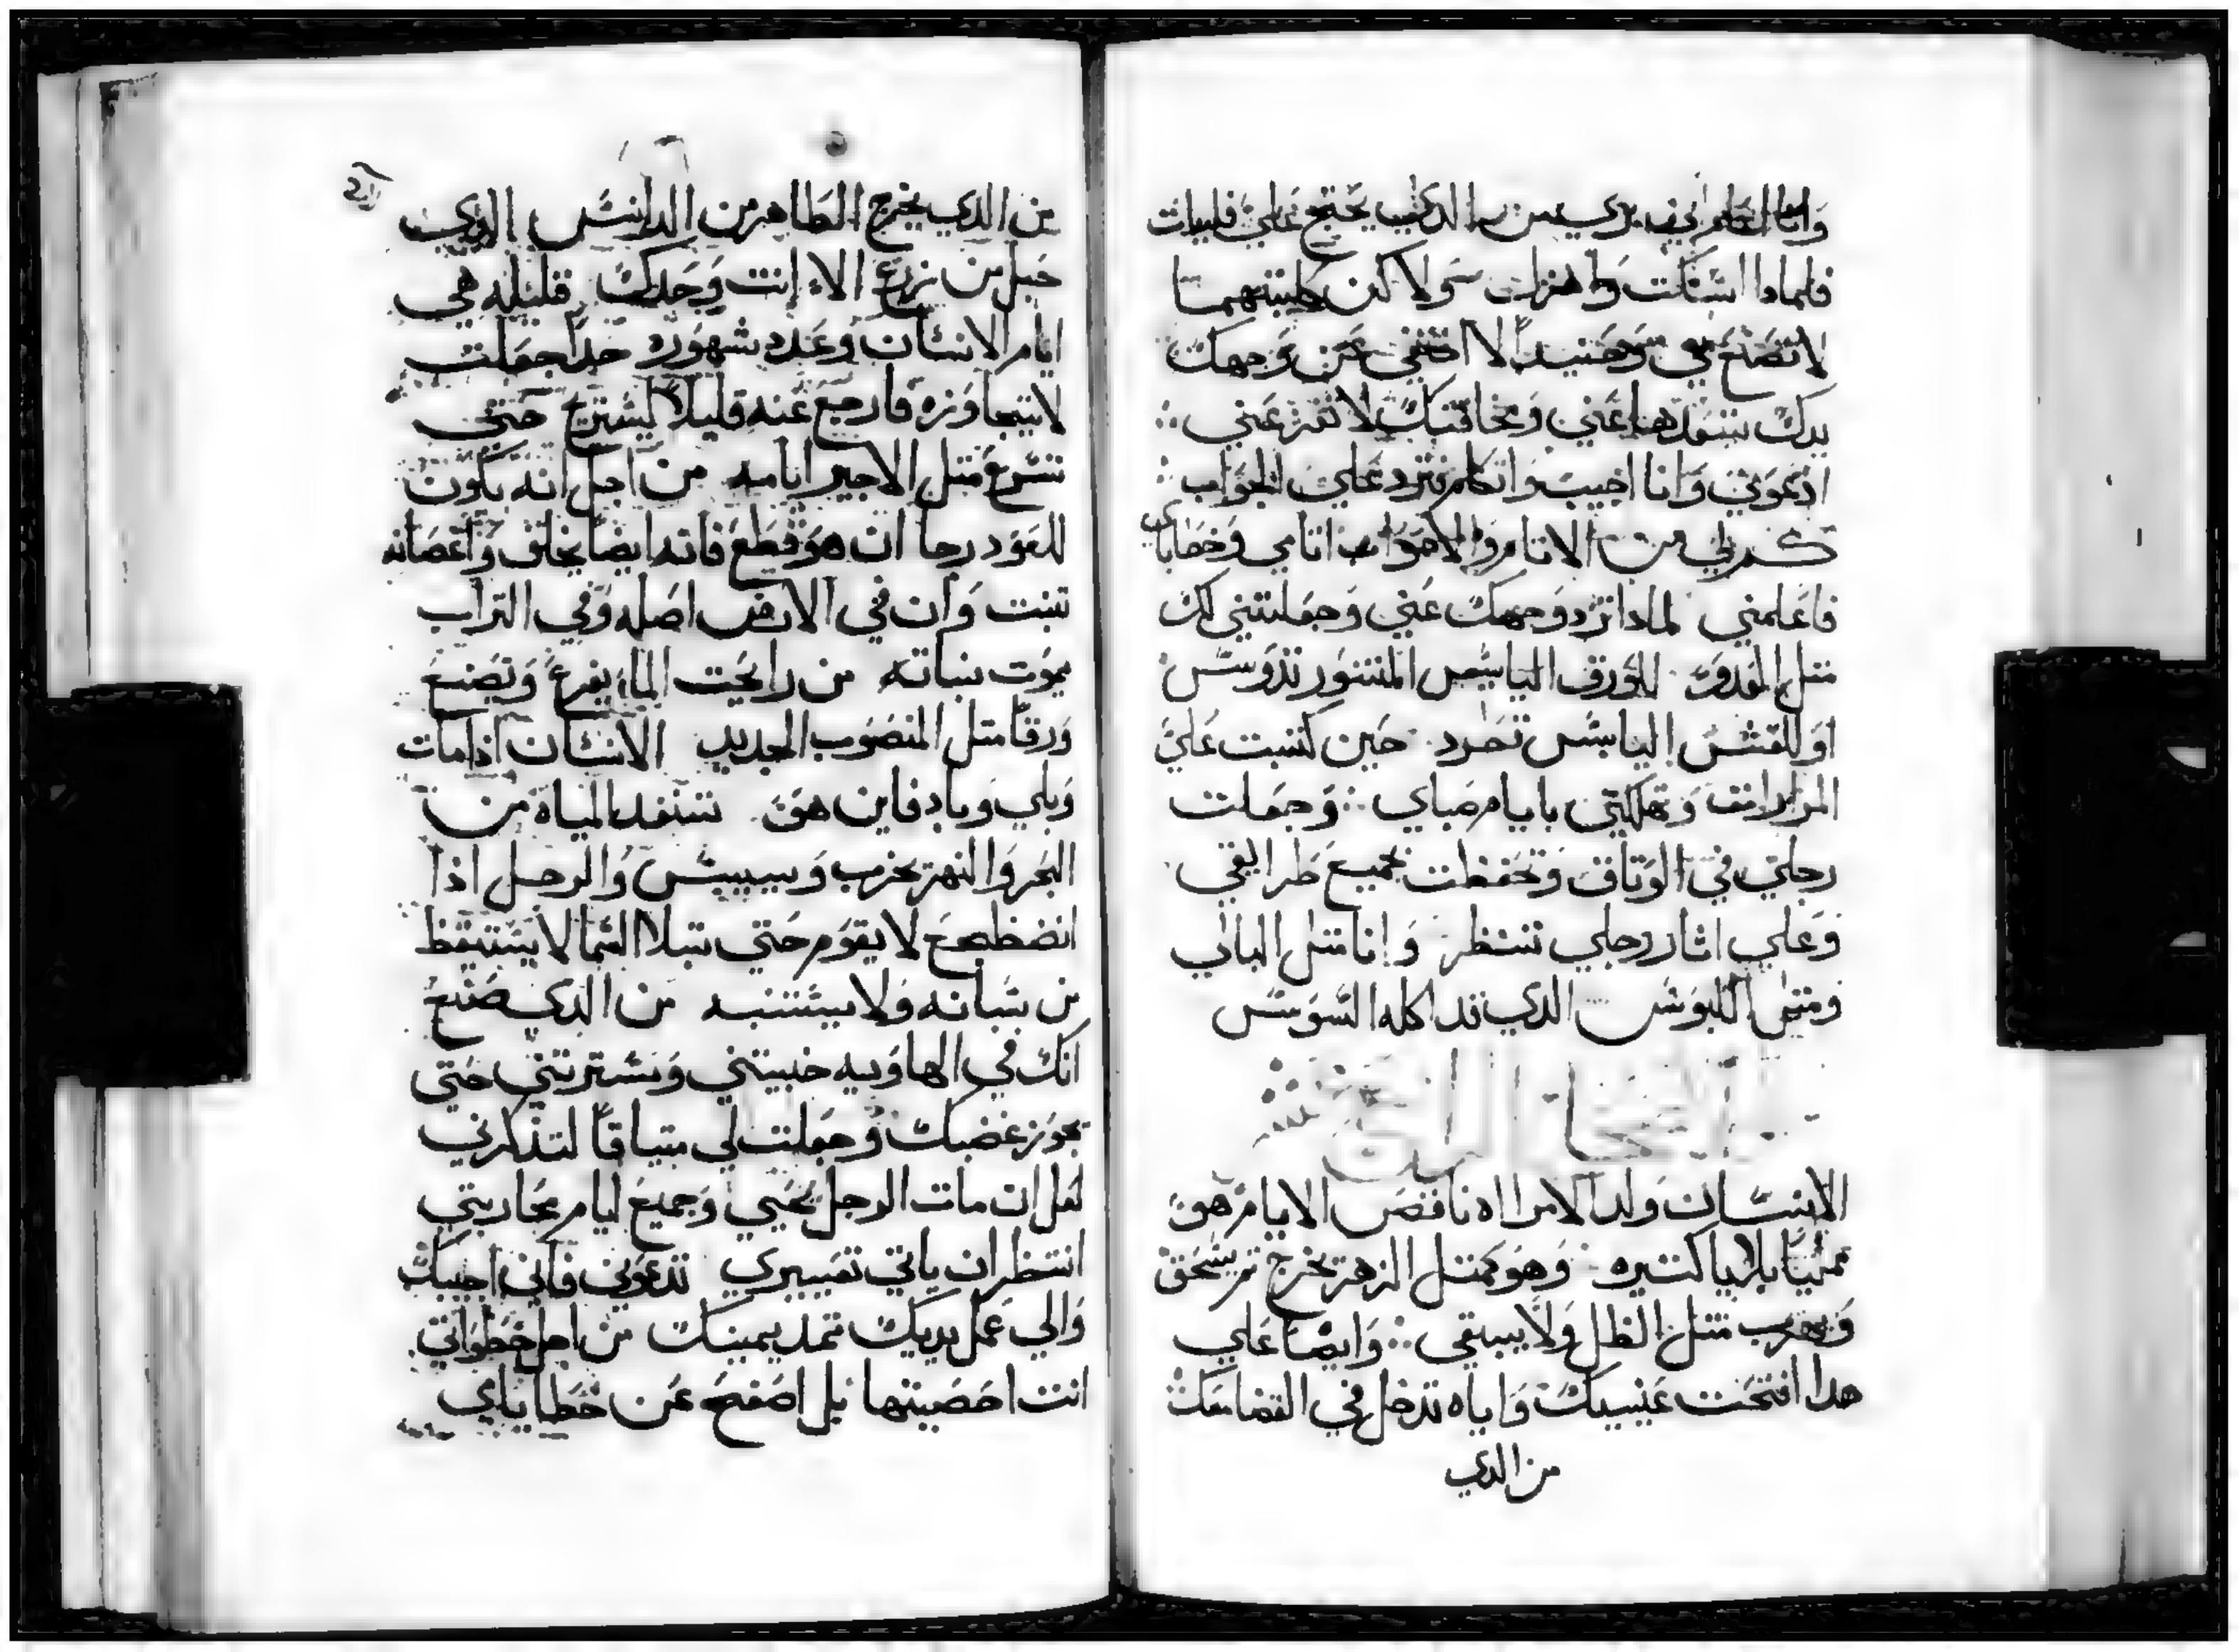 وانا اعلم اني بري من الدي يحتج علي فليات
فلمادا اسكت واهزات سولا لكن طيبتهما
لا تصنع بي وحينيد لا اختفي من وجهك
يدك تبتعدها عني ومخافتك لا تفزعني
ادعوني وانا اجيب واتكلم فترد علي الجواب
كم لي من الاتام والاصواب اتامي وخطاياي
فاعلمني لمادا ترد وجهك عني وجعلتني لك
متل العدو للورق اليابس المنتور تدوس
او للقش اليابس تحرد حين كتبت علي
المرارات وتهلكني بايام صباي وجعلت
رجلي في الوتاق وتحفظت بجميع طرايقي
وعلي اثار رجلي تنتظر وانا متل البالي
ومتل اللبوس الدي قد اكله السوس
الانسان ولد الامراه ناقص الايام هو
ممتليا بلايا كتيره وهو كمتل الزهر يخرج تم يسحق
ويهرب متل الظل ولا يبقي وايضا علي
هدا افتحت عينيك واياه تدخل في القضا معك
من الدي
من الدي يخرج الطاهر من الدانس الدي
حبل من زرع الا انت وحدك قليله هي
ايام الانسان وعدد شهوره حدا جعلت
لا يتجاوزه فارجع عنه قليلا ليستريح حتي
تسرع متل الاجير ايامه من اجل انه يكون
للعود رجا ان هو قطع فانه ايضا يخلف واغصانه
تنبت وان في الارض اصله وفي التراب
يموت نباته من رايحت الما يفرع وتصنع
ورقا متل المنصوب الجديد الانسان اذا مات
وبلي وباد فاين هو تستفد المياه من
البحر والنهر يخرب وييبس والرجل اذا
انضطجع لا يقوم حتي تبلا السما لا يستيقظ
من سباته ولا يستنبه من الدي صنع
انك في الهاويه خبيتني وتسترتني حتي
يجوز غضبك وجعلت لي ميتاقا لتذكرني
لعل ان مات الرجل يحيي وجميع ايام محاربتي
انتظر ان ياتي تغييري تدعوني فاني اجيبك
والي عمل يديك تمد يمينك من اجل خطواتي
انت احصيتها بل اصفح عن خطاياي